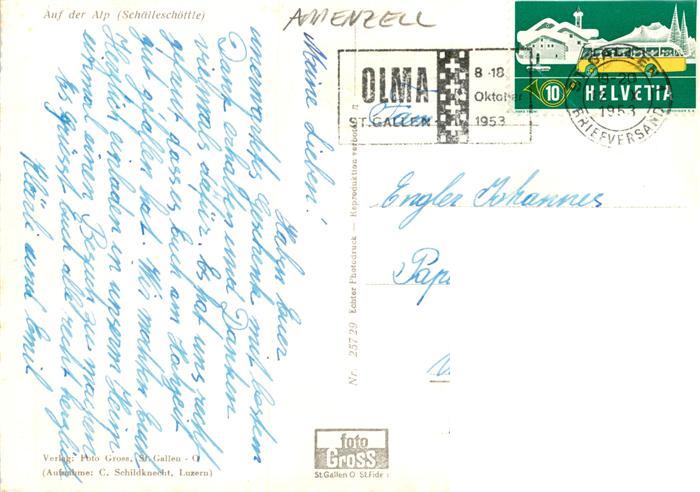 Auf der Alp (Schälleschöttle)
APPENZELL
OLMA
ST. GALLEN
8.-18.
Oktober
1953
HELVETIA
10
ST. GALLEN
18-20
1953
BRIEFVERSAND
Fam
Engler Johannes
Pap
Meine Lieben!
Haben Euer
werthes Geschenk mit besten
Dank erhalten und Danken
vielmals dafür. Es hat uns recht
gefreut dasses Euch am Hochzeit
gut gefallen hat. Wir möchten Euch
Herzlich einladen in unserm Heim
einmal einen Besuch zu machen
Es grüsst Euch alle recht herzlich
Klärli und Emil
Nr. 25729 Echter Photodruck — Reproduktion verboten
Verlag: Foto Gross, St. Gallen - O
(Aufnahme: C. Schildknecht, Luzern)
foto
Gross
St. Gallen O St. Fide